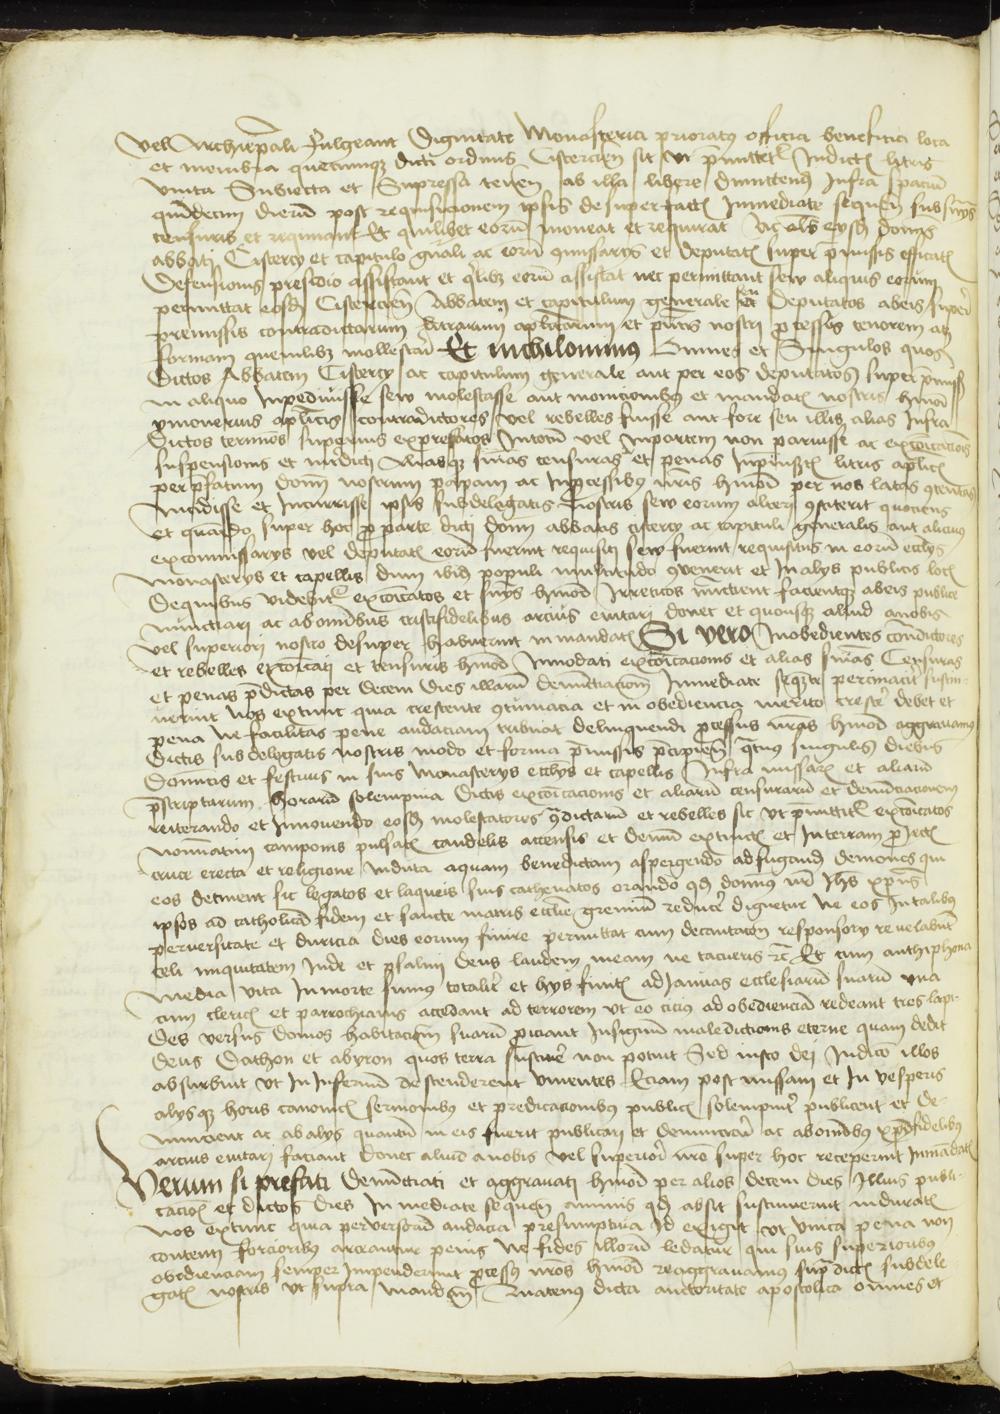 vel Archiepali fulgeant Dignitate Monasteria prioratus officia beneficia loca
et membra quecumque dicti ordinis Cistercien sit ut pmittetr Indictis litris
Unita Subiecta et Supressa teneri ab illa libere dimittendis Infra spacium
quindecim dierum post requisicionem ipsis desuper factam Inmediate sequen sub similibus
censuris et requirant Et quilibet eorum moneat et requirat Ac eisdem dominis
abbati Cistercy et capitulo gnali ac eorum cmissarys et deputatis super pmissis efficatis
Defensionis presidio assistant et quilibet eorum assistat nec permittant sew aliquis eorum
permittat eosdem Cistercien Abbatem et capitulum generale et Deputatos ab eis super
premissis contradictarum litrarum aplicarum et pntis nostri processus tenorem ac
formam quemlibet mollestari Et nichilominus Omnes et Singulos quos
Dictos Abbatem Cistercy ac capitulum generale aut per eos deputatos super pmissis
in aliquo Inpedivisse sew molestasse aut monicionibus et mandatis nostris hmoi
ymoverius aplicis contradictores vel rebelles fuisse aut fore seu illis alias Infra
Dictos terminos superius expressatos Intotum vel Inpartem non paruisse ac excomcacionis
suspensionis et interdicti Aliasque suas censuras et penas Inpinsertis litris aplicis
per pfatum dominum nostrum papam ac Inprocessibus nris hmoi per nos latas
Incidisse et Incurrisse ipsis subdelegatis nostris sew eorum alteri constiterit quociens
et quando super hoc pro parte dicti domini abbatis cistercy ac capituli generalis aut alicuius
ex commissarys vel deputatis eorum fuerint requisiti sew fuerint requisitus in eorum ecclys
Monasterys et capellis dum ibidem populi multitudo convenerit et In alys publicis locis
De quibus videbitur excomcatos et hmoi Irretitos nuncient faciantque ab eis publice
nunciari ac ab omnibus cristifidelibus arcius evitari donec et quousque aliud anobis
vel superiori nostro desuper habuerint in mandatis Si vero Inobedientes contradictores
et rebelles excomcati et censuris hmoi Innodati excomcacionis et alias suas Censuras
et penas pdictas per decem dies illarum denunciacionem Inmediate sequentes pertinaciter sustin-
uerint Nos extunc quia crescente contumacia et in obediencia merito crescere debet et
pena ne facilitas pene audaciam tribuat delinquendi processus nros hmoi aggravamus
Dictis subdelegatis nostris modo et forma pmissis quatenus singulis diebus
Dominicis et festivis in suis Monasterys ecclys et capellis Infra missarum et aliarum
pscriptarum horarum solempnia Dictis excomcacionis et aliarum censurarum et denunciacionem
reiterando et Innovendo eosdem molestatores contradictarum et rebelles sic ut pmittitur excomcatos
nominatim campanis pulsatis candelis accensis et demum extinctis et Interram proiectis
cruce erecta et religione induta aquam benedictam aspergendo ad fugandum demones qui
eos detinent sic legatos et laqueis suis cathenatos orando quod dominus nr Jhs xpus
ipsos ad catholicam fidem et sancte matris ecclie gremium reducere dignetur Ne eos Intalibus
perversitate et duricia dies eorum finire permittat cum decantacione responsory revelabunt
celi iniquitatem Jude et psalmi Deus laudem meam ne tacueris etc Et cum anthiphona
Media vita Inmorte sumus totaliter et hys finitis adJanuas ecclesiarum suarum una
cum clericis et parrochianis accedant ad terrorem ut eo cicius ad obedienciam redeant tres lapi-
des versus domos habitacionum suarum proiciant Insignum maledictionis eterne quam dedit
deus Dathon et abyron quos terra sustinere non potuit Sed iusto dei Judicio illos
absorbuit ut InInfernum descenderent viventes Eciam post missam et In vesperis
alysque horis canonicis sermonibus et predicacionibus publicis solempniter publicent et De-
nuncient ac ab alys quantum in eis fuerit publicari et denunciari ac abomnibus xpifidelibus
arcius evitari faciant Donec aliud anobis vel superiori nro super hoc receperint Inmandatis
Verum si prefati denunciati et aggravati hmoi per alios decem dies Illius publi-
cacionem et dictos dies In mediate sequen animis quod absit sustinuerint induratis
Nos extunc quia perversorum audacia presumptiva Id exigit ut unica pena non
contenti forcioribus arceantur penis Ne fides illorum ledatur qui suis superioribus
obedienciam semper Impenderunt processus nros hmoi reaggravamus supradictis subdele-
gatis nostris ut supra mandantes Quatenus dicta auctoritate apostolica omnes et